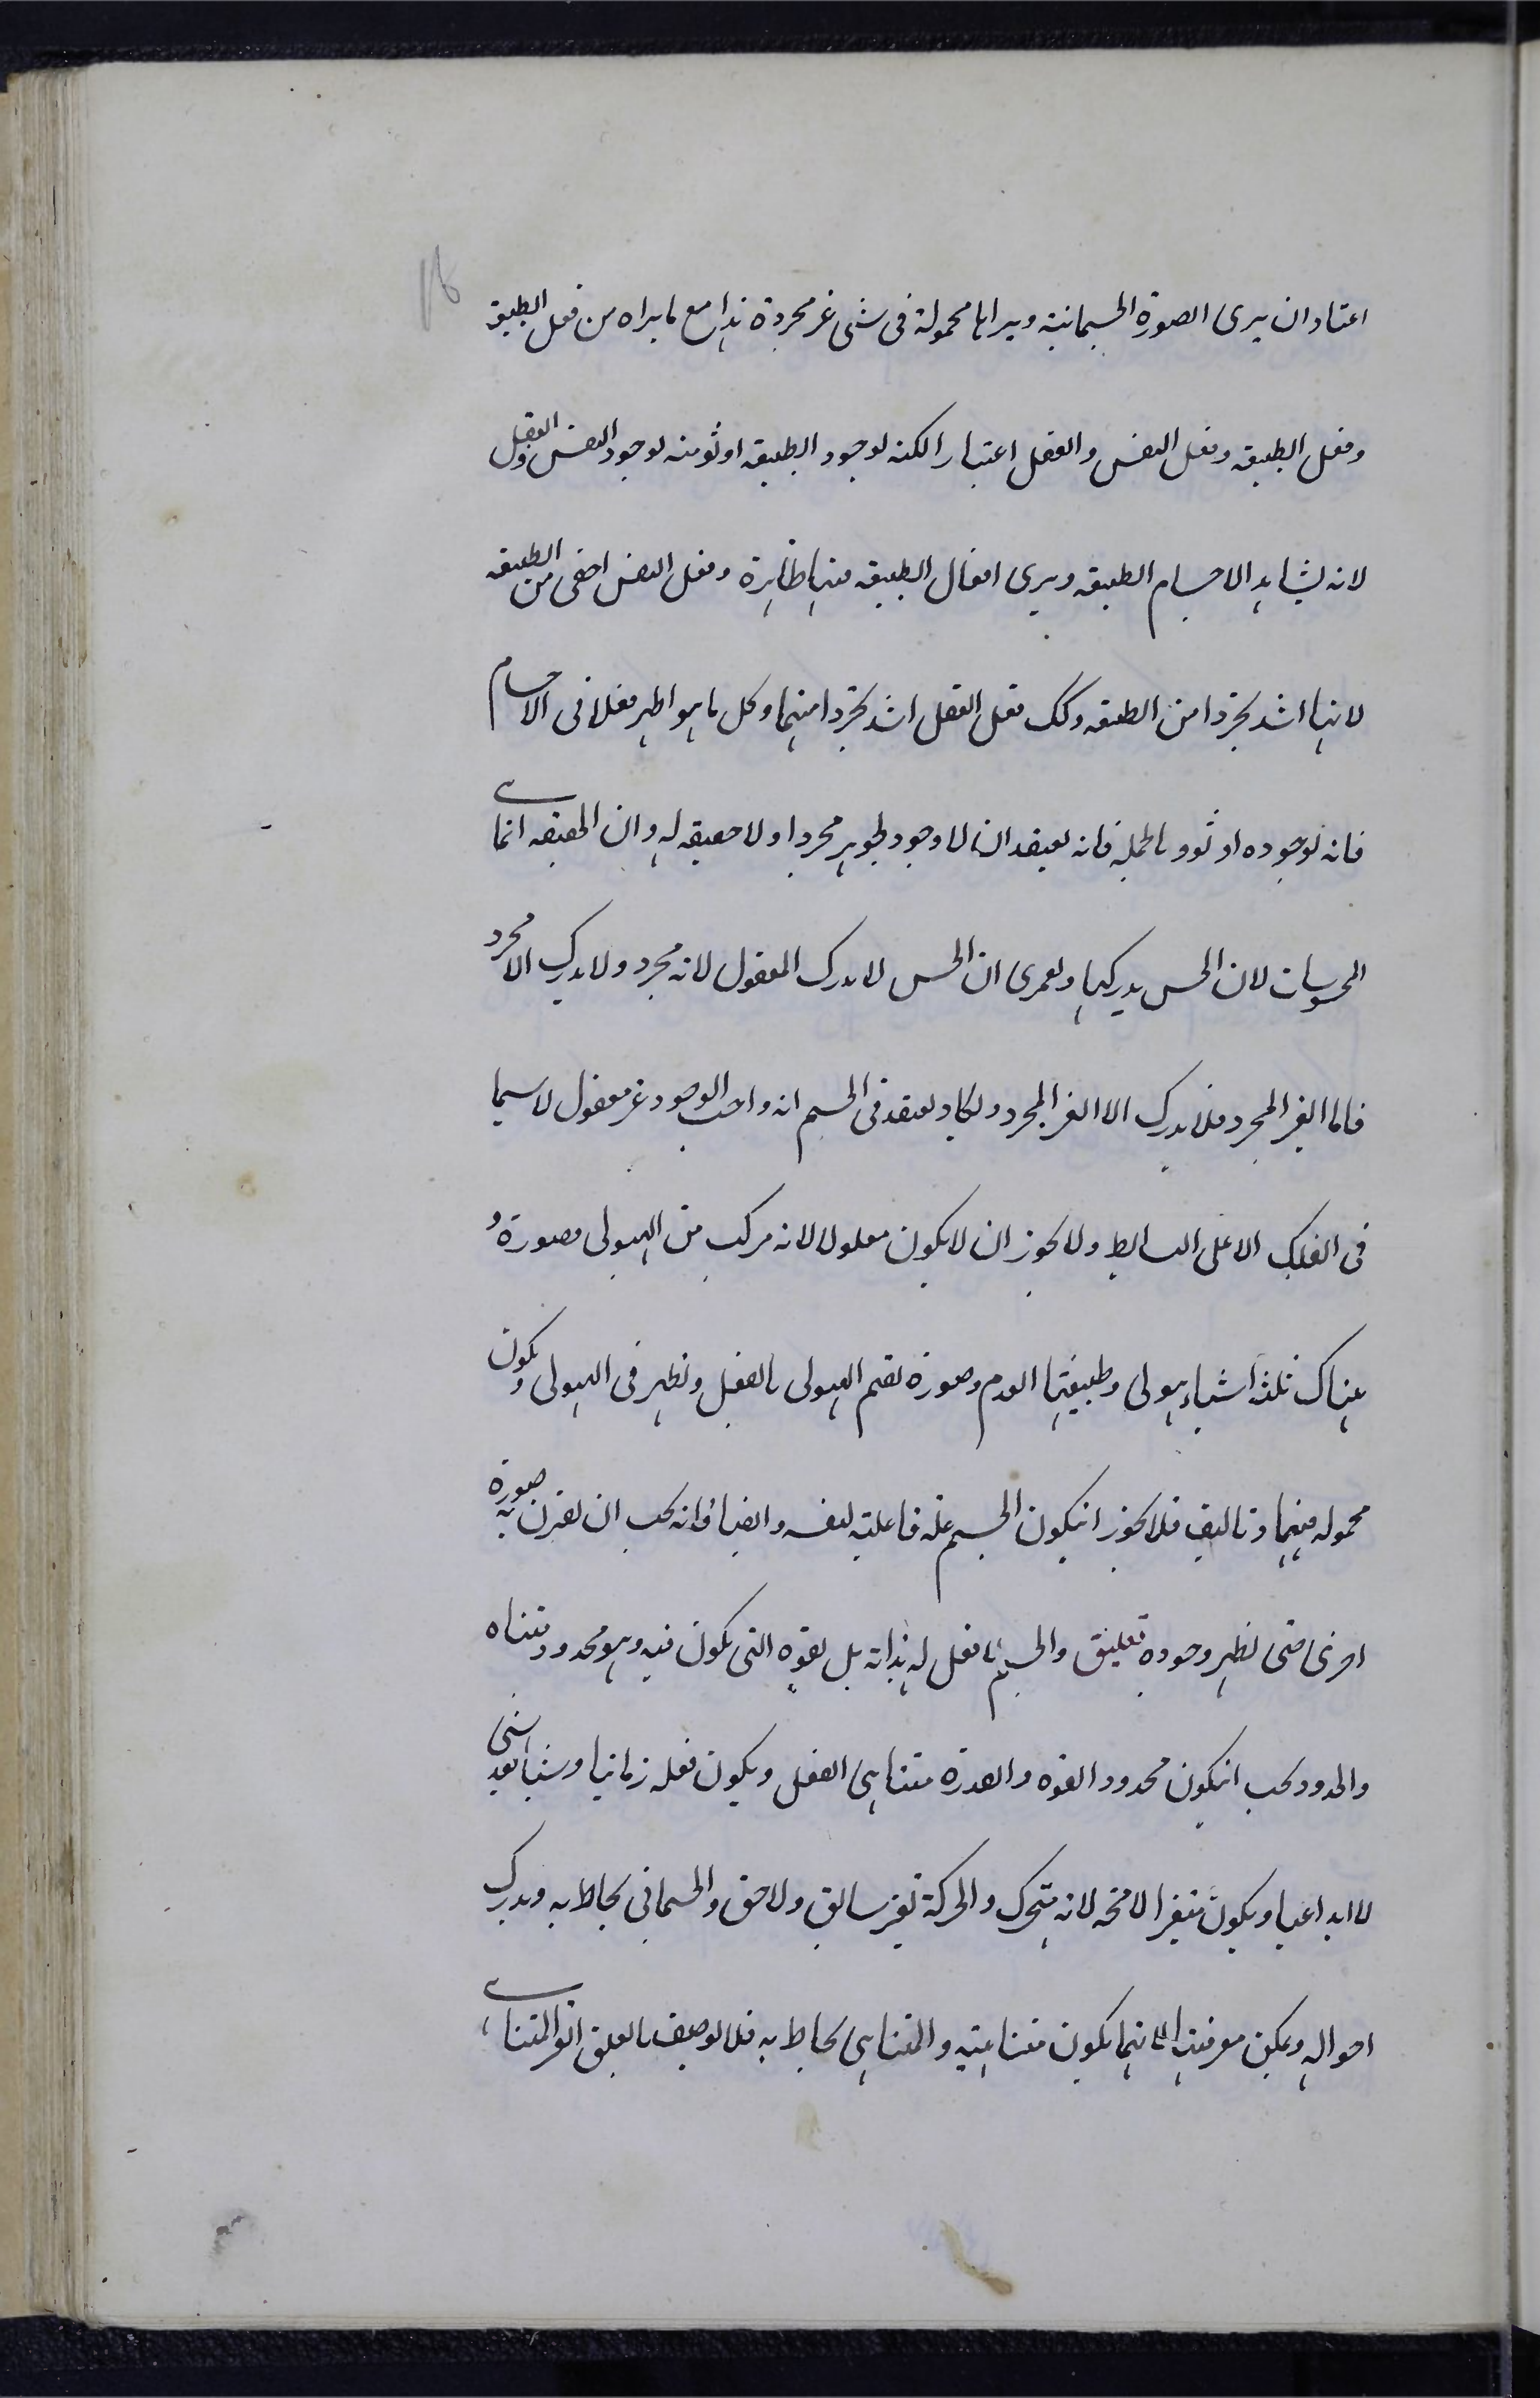 اعتاد ان يرى الصورة الجسمانية ويراها محمولة فى شئ غير مجردة هذا مع ما يراه من فعل الطبيعة
وفعل الطبيعة وفعل النفس والعقل اعتبارا لكنه لوجود الطبيعة اوثق منه لوجود النفس والعقل
لانه يشاهد الاجسام الطبيعة ويرى افعال الطبيعة فيها ظاهرة وفعل النفس اخفى من الطبيعة
لانها اشد تجردا من الطبيعة وكك فعل العقل اشد تجردا منهما وكل ما هو اظهر فعلا فى الاجسام
فانه لوجوده اوثق وبالجملة فانه يعتقد ان لا وجود لجوهر مجرد او لا حقيقة له وان الحقيقة انما هى
المحسوسات لان الحس يدركها ولعمرى ان الحس لا يدرك المعقول لانه مجرد ولا يدرك المجرد الا
فاما الغير المجرد فلا يدرك الا الغير المجرد ويكاد يعتقد فى الجسم انه واجب الوجود غير معلول لا سيما
فى الفلك الاعلى البسائط ولا يجوز ان لا يكون معلولا لانه مركب من الهيولى وصورة و
هناك ثلثة اشياء هيولى وطبيعتها العدم وصورة تقيم الهيولى بالفعل وتظهر فى الهيولى وتكون
محمولة فيها وتاليف فلا يجوز ان يكون الجسم علة فاعلية لنفسه وايضا فانه يجب ان يقترن به صورة
اخرى حتى يظهر وجوده تعليق والجسم لا فعل له بذاته بل بقوة التى يكون فيه وهو محدود متناه
والحدود يجب ان يكون محدود القوه والقدرة متناهى الفعل ويكون فعله زمانيا وشيئا بعد شئ
لا ابداعيا ويكون متغيرا لا محة لانه يتحرك والحركة تغير سابق ولاحق والجسمانى يحاط به ويدرك
احواله ويمكن معرفتها لانها تكون متناهية والمتناهى يحاط به فلا يوصف بالعلق القوة المتناهى